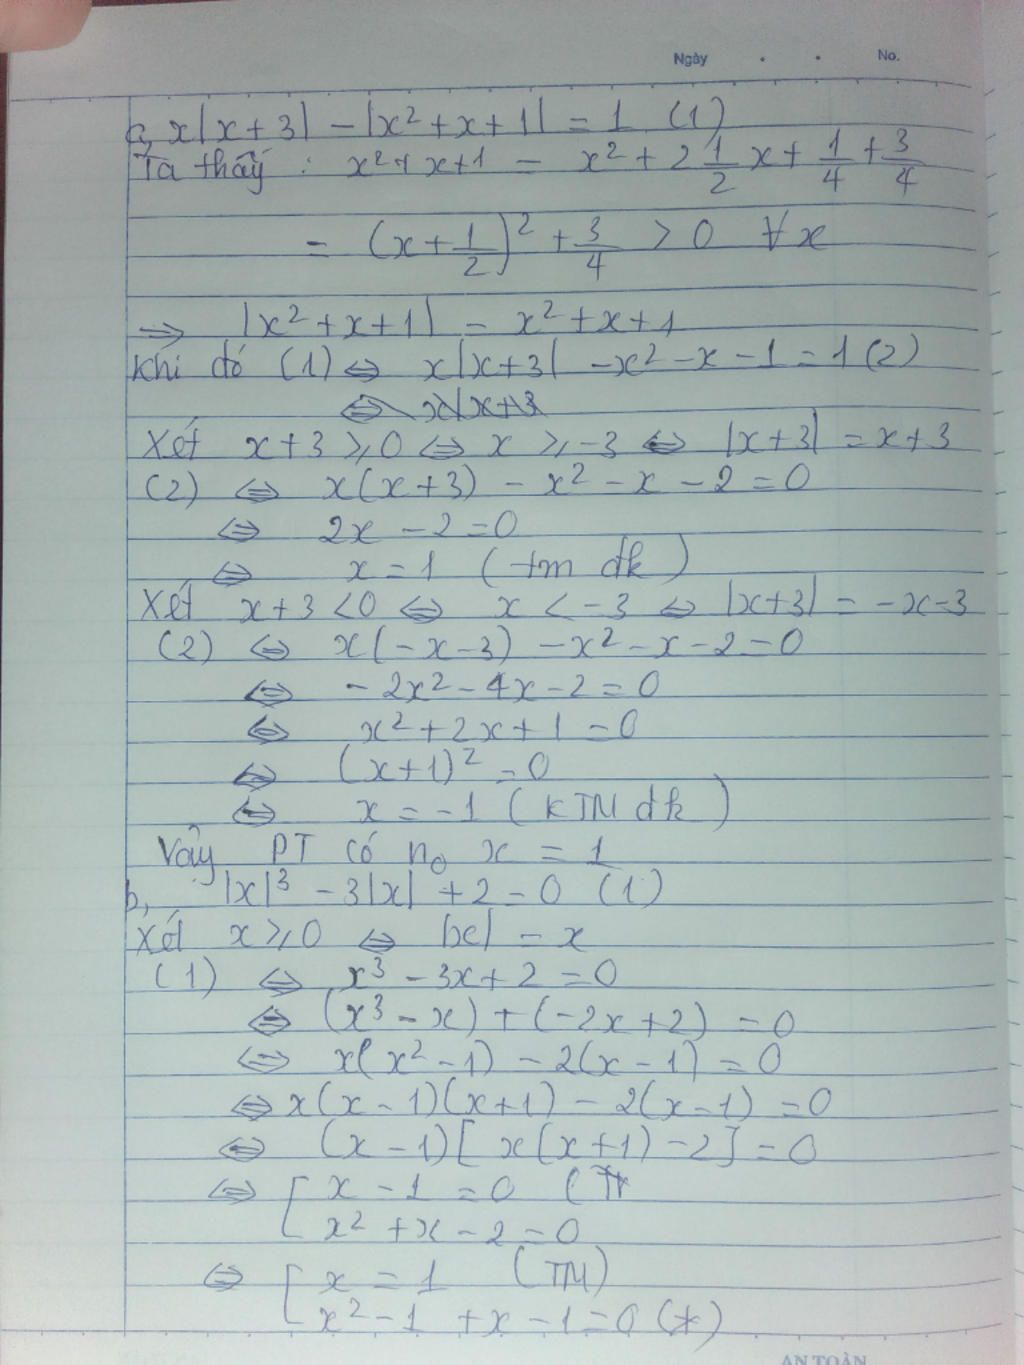 Ngày . . No.
a, x|x+3| - |x²+x+1| = 1 (1)
Ta thấy : x²+x+1 = x² + 2 1/2 x + 1/4 + 3/4
= (x + 1/2)² + 3/4 > 0 ∀x
⇒ |x²+x+1| = x²+x+1
Khi đó (1) ⇔ x|x+3| -x² -x -1 = 1 (2)
⇔ x|x+3
Xét x+3 ≥ 0 ⇔ x ≥ -3 ⇔ |x+3| = x+3
(2) ⇔ x(x+3) - x² - x - 2 = 0
⇔ 2x - 2 = 0
⇔ x = 1 (tm đk)
Xét x+3 < 0 ⇔ x < -3 ⇔ |x+3| = -x-3
(2) ⇔ x(-x-3) -x² -x -2 = 0
⇔ -2x² -4x -2 = 0
⇔ x² + 2x + 1 = 0
⇔ (x+1)² = 0
⇔ x = -1 (KTM đk)
Vậy PT có n₀ x = 1
b, |x|³ - 3|x| + 2 = 0 (1)
Xét x ≥ 0 ⇔ |x| = x
(1) ⇔ x³ - 3x + 2 = 0
⇔ (x³ - x) + (-2x+2) = 0
⇔ x(x² - 1) - 2(x - 1) = 0
⇔ x(x-1)(x+1) - 2(x-1) = 0
⇔ (x-1)[x(x+1) - 2] = 0
⇔ [ x - 1 = 0 (
x² + x - 2 = 0
⇔ [ x = 1 (TM)
x² - 1 + x - 1 = 0 (*)
AN TOÀN